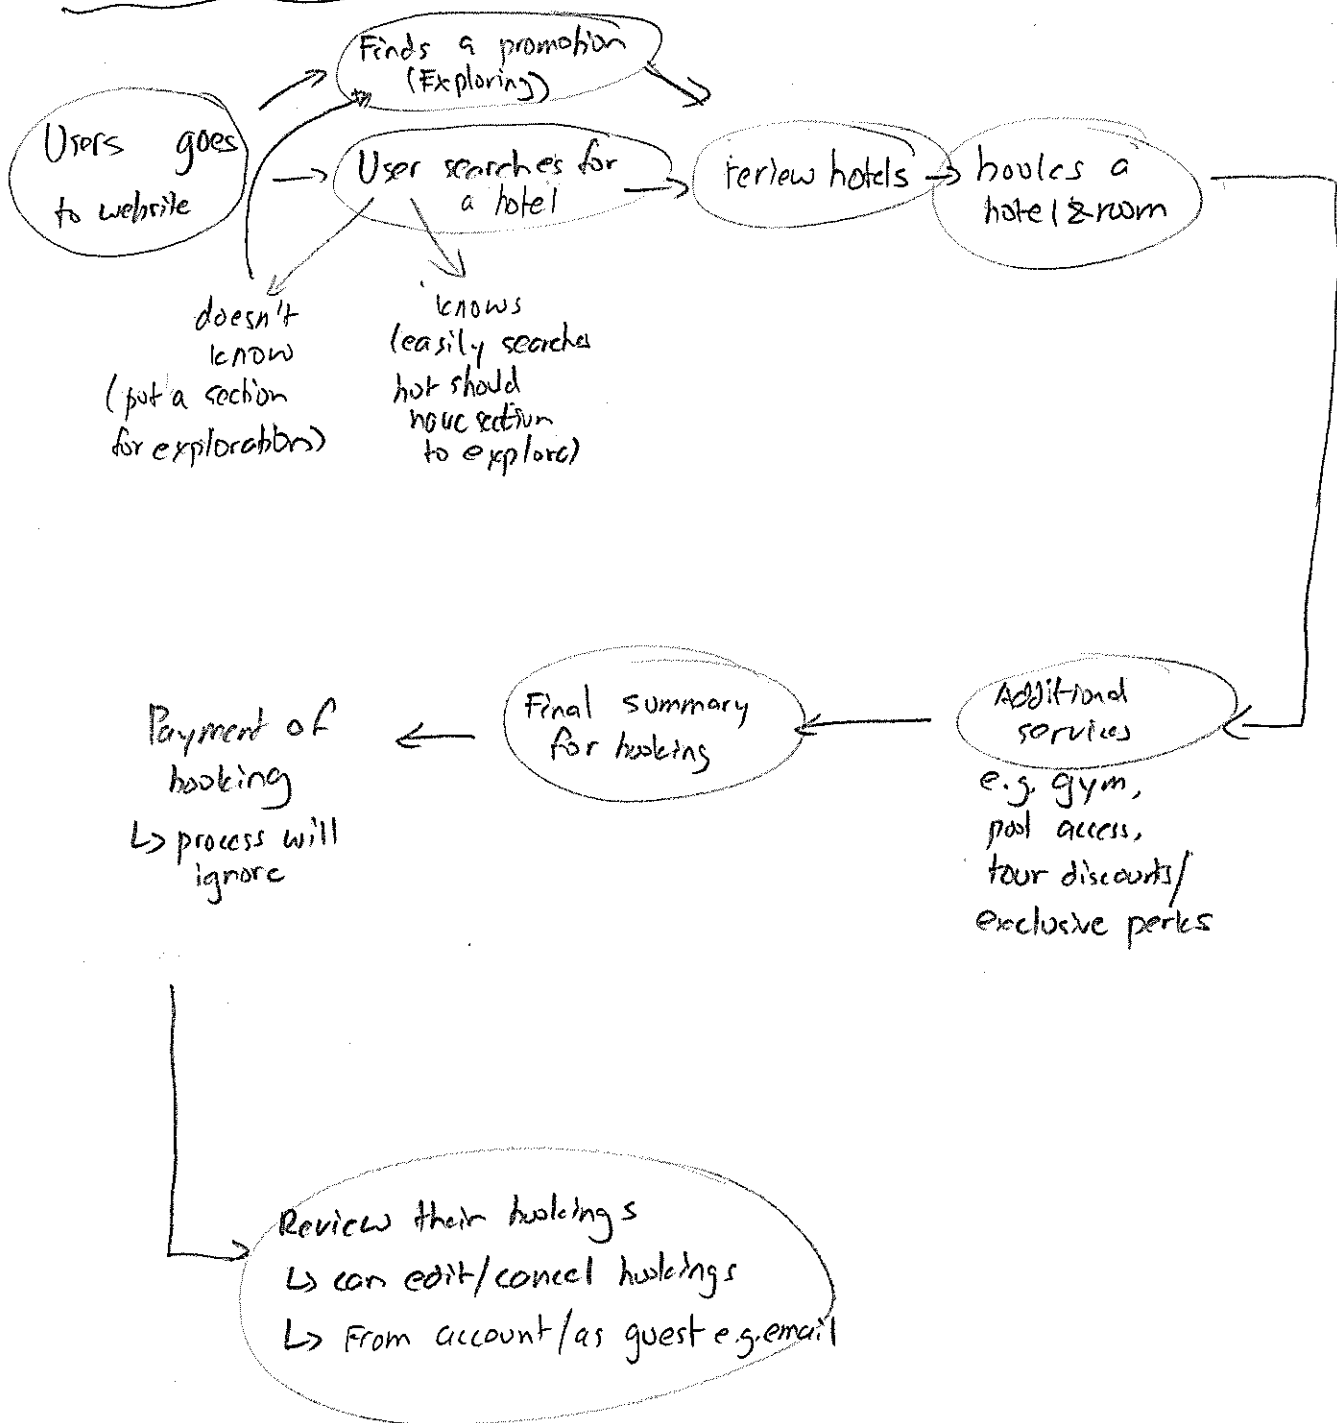 Finds a promotion
(Exploring)
Users goes
to website
User searches for
a hotel
review hotels
books a
hotel & room
doesn't
know
(put a section
for exploration)
knows
(easily searches
but should
have section
to explore)
Additional
services
e.g. gym,
pool access,
tour discounts/
exclusive perks
Final summary
for booking
Payment of
booking
↳ process will
ignore
Review their bookings
↳ can edit/cancel bookings
↳ From account/as guest e.g. email